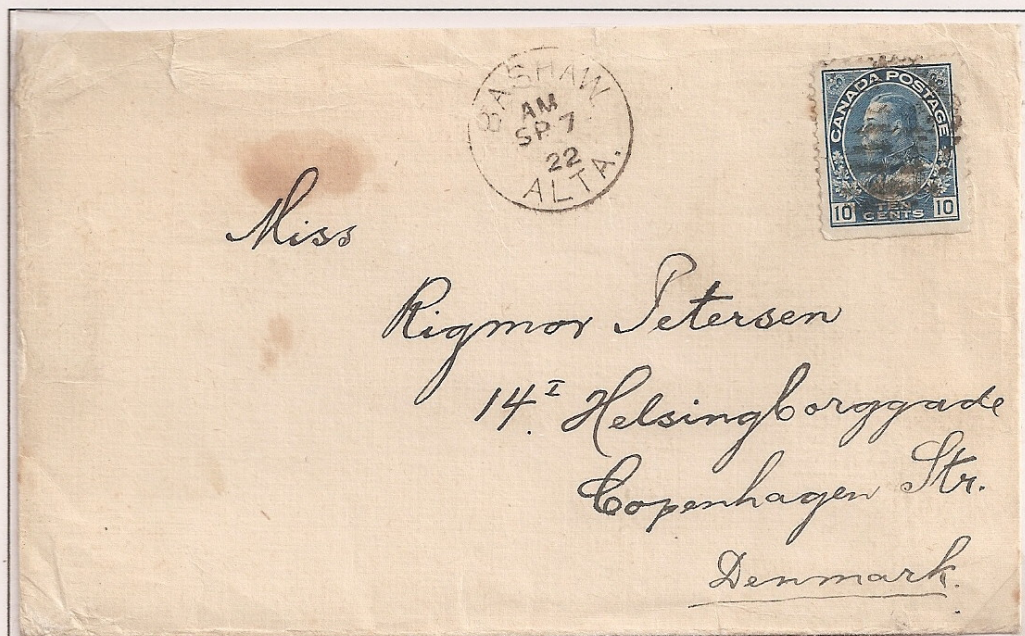 BASHAW
AM
SP 7
22
ALTA.
CANADA POSTAGE
10 TEN CENTS 10
Miss
Rigmor Petersen
14 I Helsingborggade
Copenhagen Str.
Denmark.